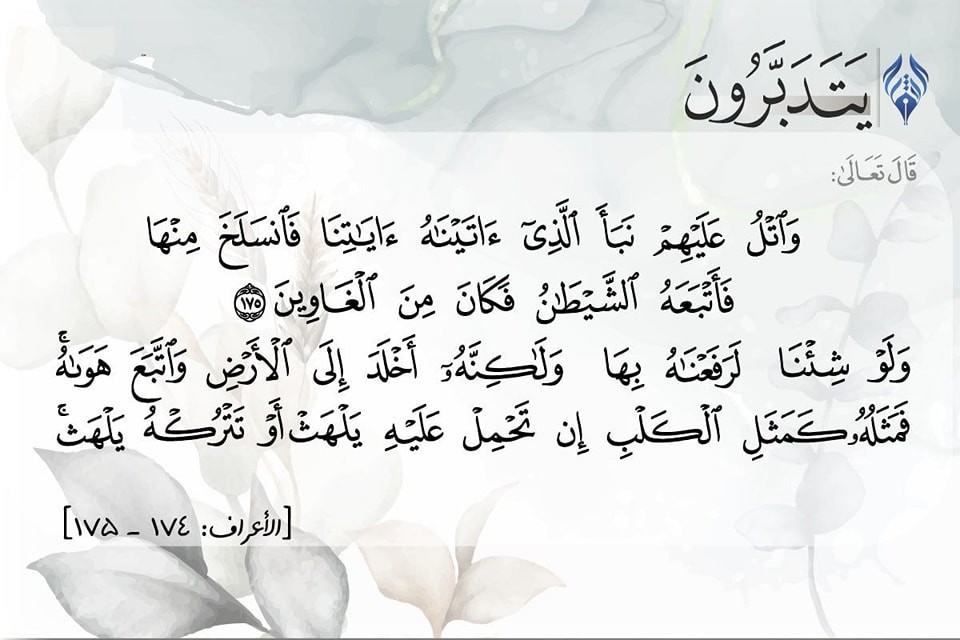 يَتَدَبَّرُونَ
قَالَ تَعَالَىٰ:
وَٱتْلُ عَلَيْهِمْ نَبَأَ ٱلَّذِىٓ ءَاتَيْنَـٰهُ ءَايَـٰتِنَا فَٱنسَلَخَ مِنْهَا
فَأَتْبَعَهُ ٱلشَّيْطَـٰنُ فَكَانَ مِنَ ٱلْغَاوِينَ ١٧٥
وَلَوْ شِئْنَا لَرَفَعْنَـٰهُ بِهَا وَلَـٰكِنَّهُۥٓ أَخْلَدَ إِلَى ٱلْأَرْضِ وَٱتَّبَعَ هَوَىٰهُ ۚ
فَمَثَلُهُۥ كَمَثَلِ ٱلْكَلْبِ إِن تَحْمِلْ عَلَيْهِ يَلْهَثْ أَوْ تَتْرُكْهُ يَلْهَث ۚ
[الأعراف: ١٧٤ - ١٧٥]